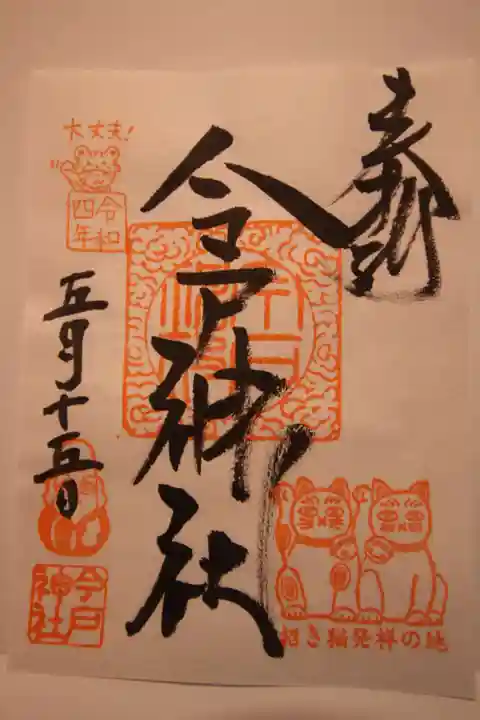 奉拝
今戸神社
大丈夫!
令和
四年
五月十五日
今戸
神社
招き猫発祥の地